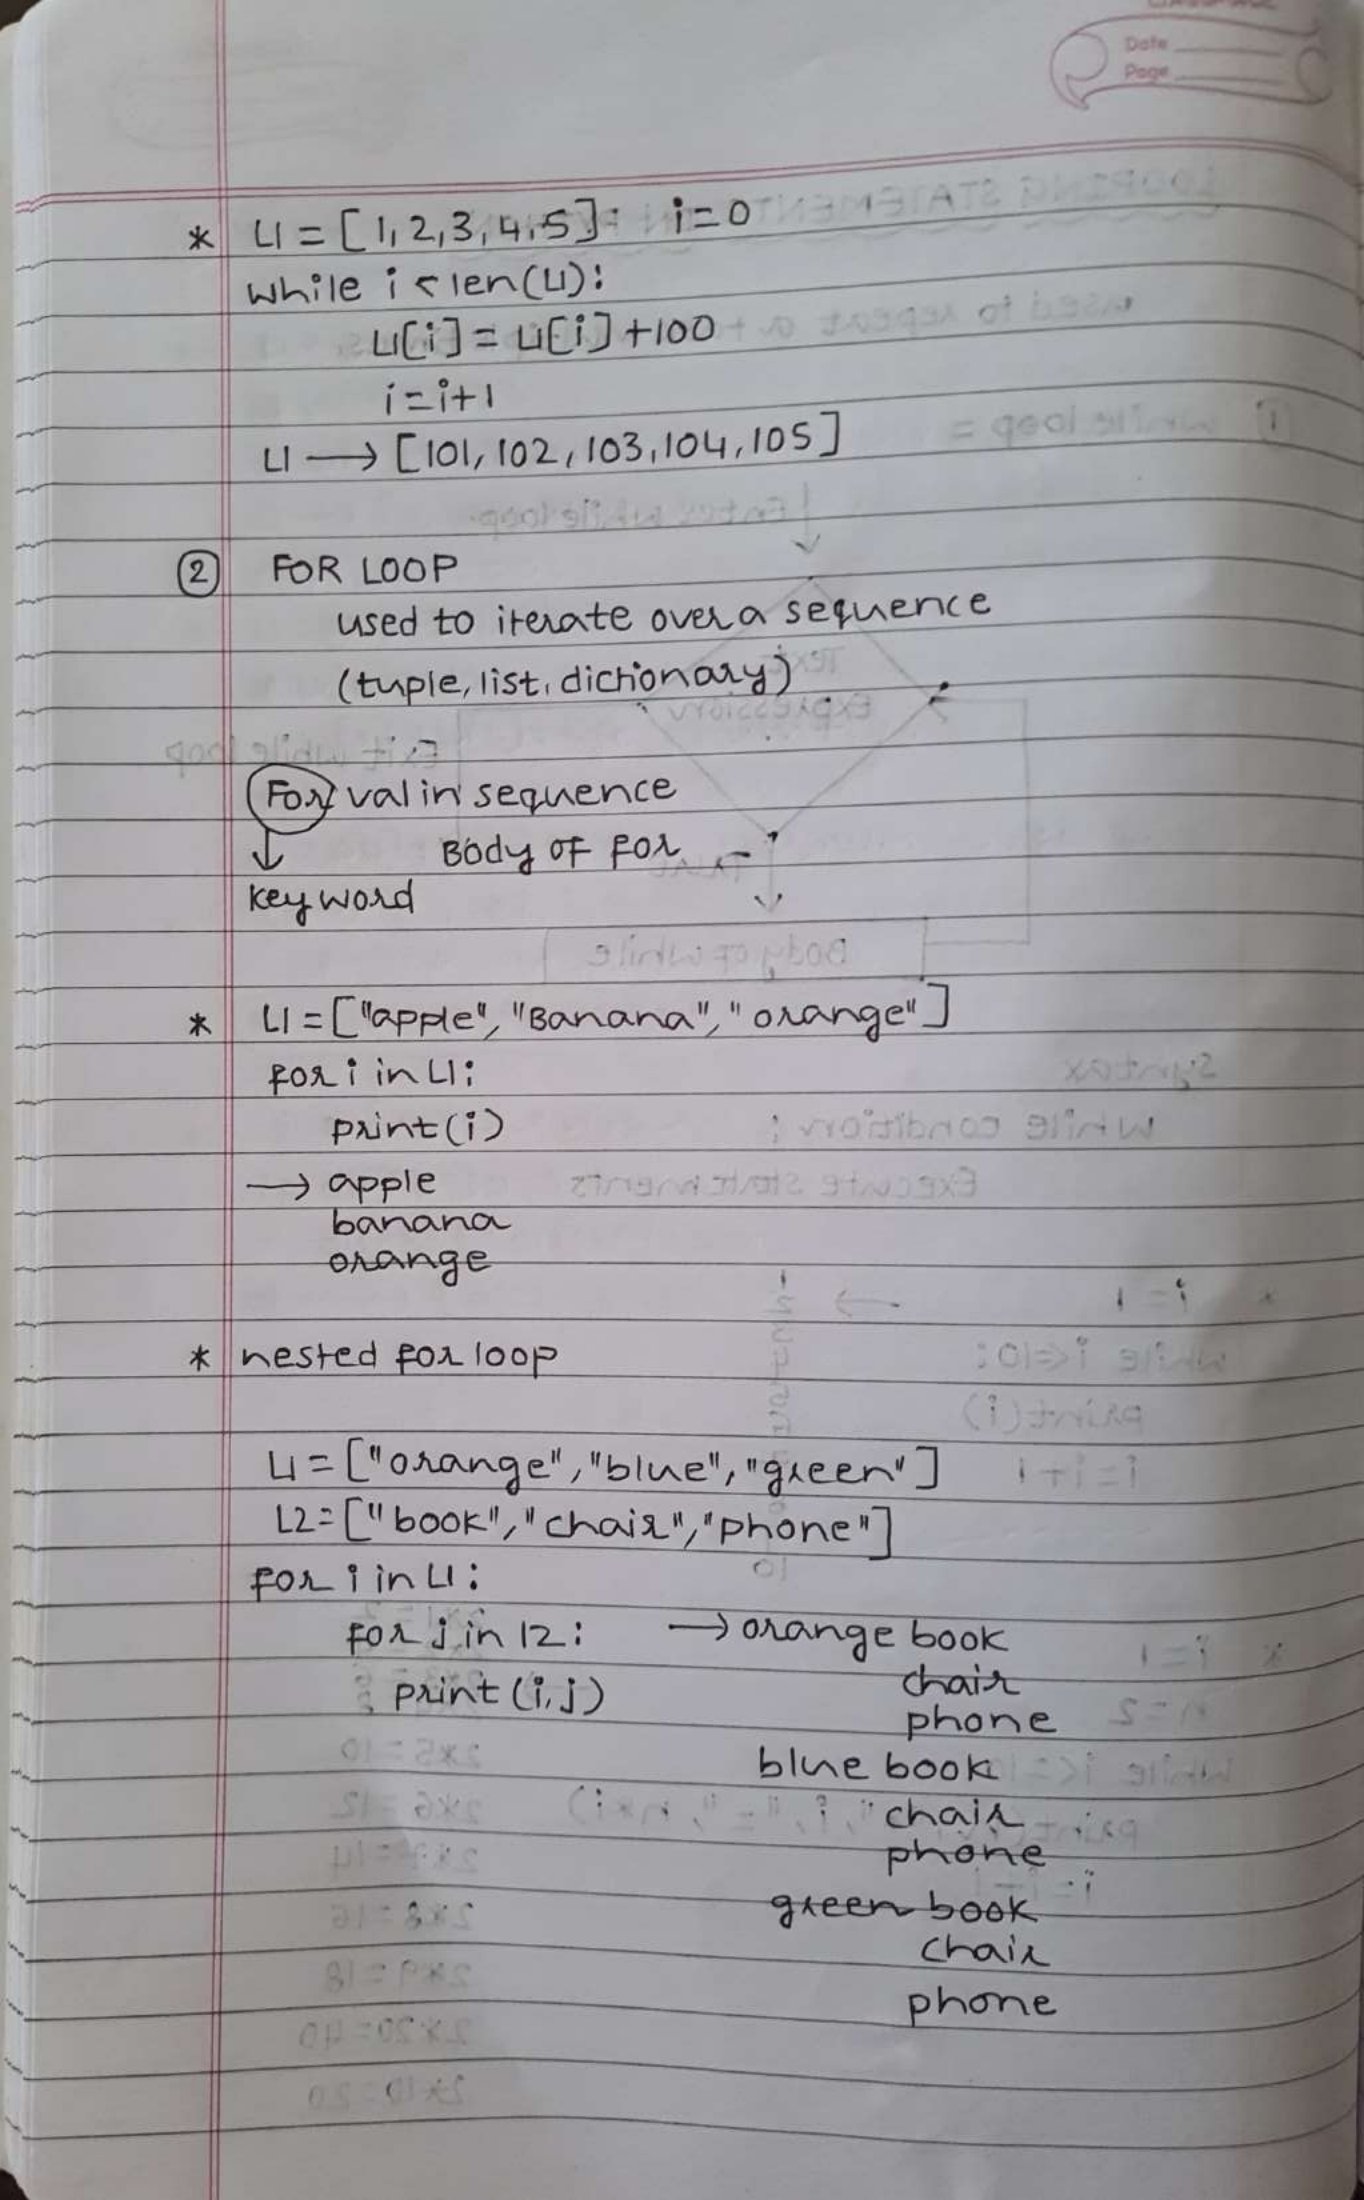 Date
Page
* L1 = [1,2,3,4,5]: i=0
while i < len(L1):
L1[i] = L1[i] +100
i=i+1
L1 → [101, 102, 103, 104, 105]
② FOR LOOP
used to iterate over a sequence
(tuple, list, dictionary)
For val in sequence
↓ Body of for
keyword
* L1 = ["apple", "Banana", "orange"]
for i in L1:
print(i)
→ apple
banana
orange
* nested for loop
L1 = ["orange", "blue", "green"]
L2= ["book", "chair", "phone"]
for i in L1:
for j in l2: → orange book
print (i,j) chair
phone
blue book
chair
phone
green book
chair
phone